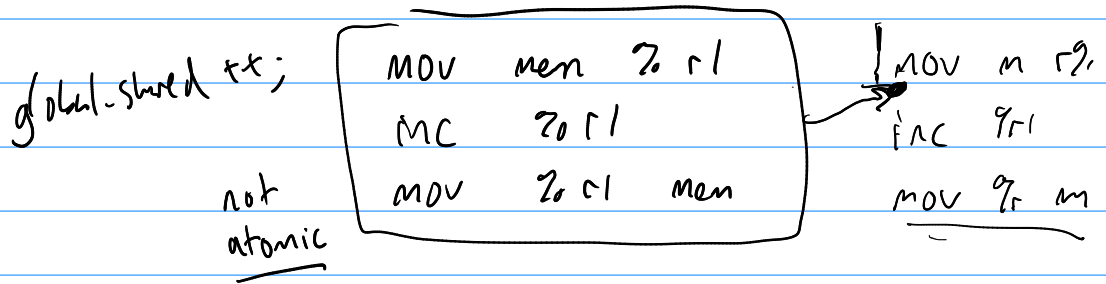 global_shared ++;
not
atomic
mov mem % r1
inc % r1
mov % r1 mem
mov m r%
inc %r1
mov %r m